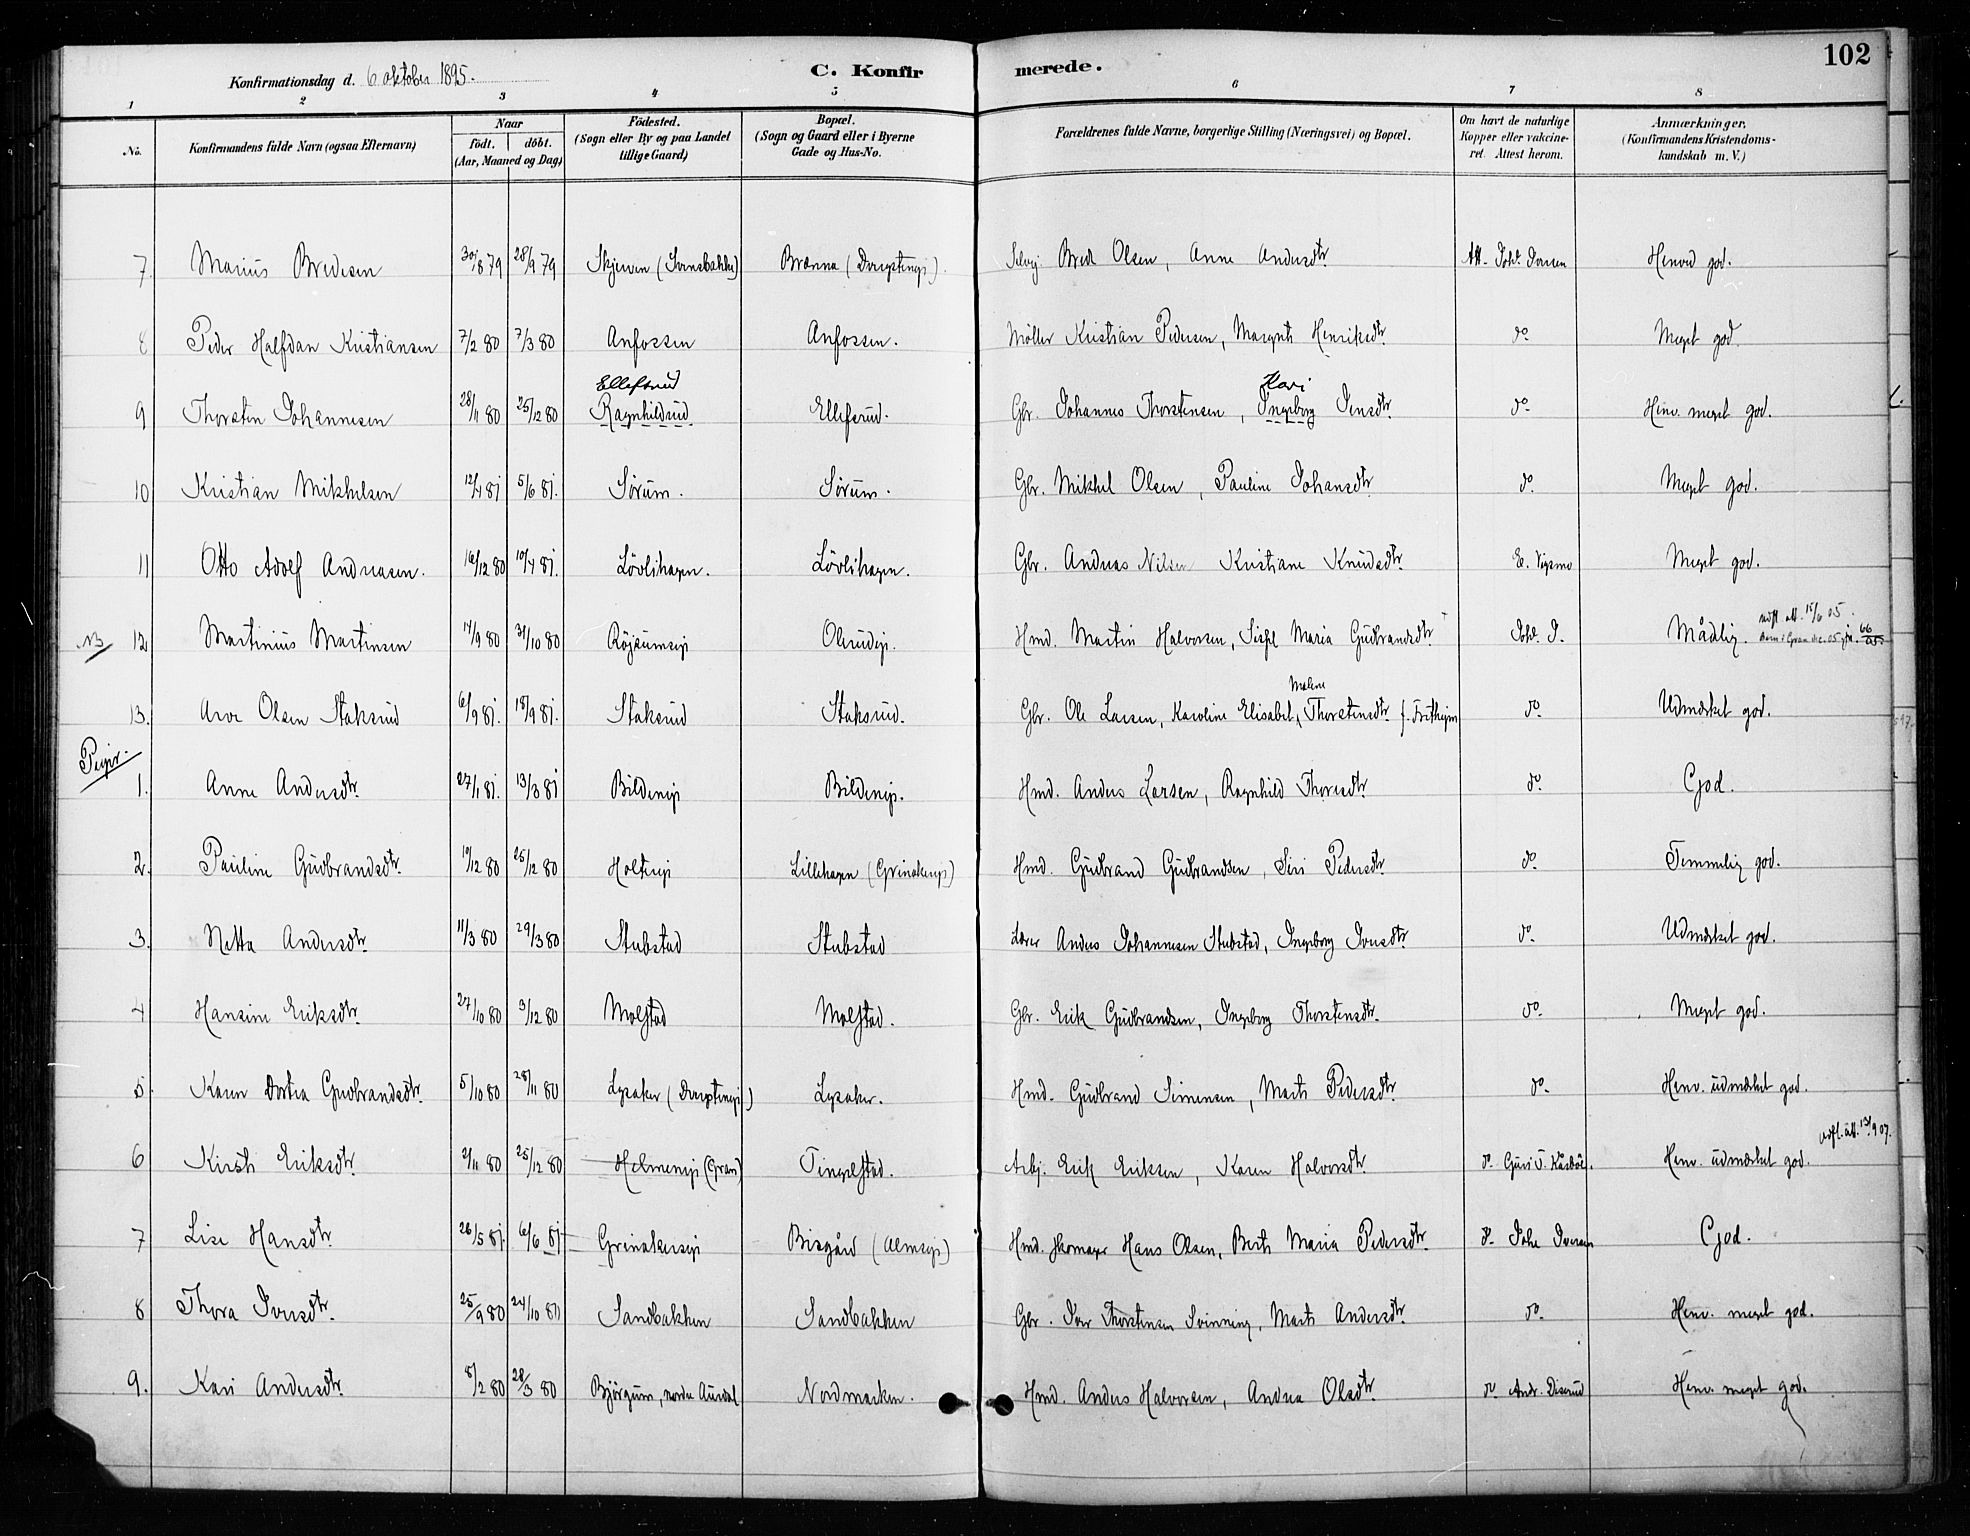 102
Konfirmationsdag d. 6 oktober 1895.
C. Konfirmerede.
1 2 3 4 5 6 7 8
No. Konfirmandens fulde Navn (ogsaa Efternavn) Naar født. døbt. (Aar, Maaned og Dag) Fødested. (Sogn eller By og paa Landet tillige Gaard) Bopæl. (Sogn og Gaard eller i Byerne Gade og Hus-No. Forældrenes fulde Navne, borgerlige Stilling (Næringsvei) og Bopæl. Om havt de naturlige Kopper eller vakcineret. Attest herom. Anmærkninger, (Konfirmandens Kristendomskundskab m. V.)
7. Marius Bredesen 30/8 79 28/9 79 Skjerven ( Brænna ( Selvej Bredе Olsen, Anne Andersdtr. Att. Joh. Iversen Henved god.
8 Peder Halfdan Kristiansen 7/2 80 7/3 80 Anfossen Anfossen. Møller Kristian Pedersen, Margrete Henriksdtr. do Meget god.
Ellefsrud Kari
9 Thorsten Johannesen 28/11 80 25/12 80 Ragnhildrud Ellefsrud. Gbr. Johannes Thorstensen, Ingeborg Jensdtr. do Henv. meget god.
10 Kristian Mikkelsen 12/4 81 5/6 81. Sørum. Sørum. Gbr. Mikkel Olsen, Pauline Johansdtr. do Meget god.
11 Otto Adolf Andreasen. 16/12 80 10/4 81. Løvlihagen. Løvlihagen. Gbr. Andreas Nilsen Kristiane Knudsdtr. E. Vigsmo Meget god.
NB 12 Martinius Martinsen 14/9 80 31/10 80 Røjsumejе Olerudej. Hmd. Martin Halvorsen, Maria Gudbrandsdtr. Joh. I. Mådlig. udfl. att. 15/6 05.
Malene
13. Arve Olsen Staksrud 6/9 81. 18/9 81. Staksrud Staksrud. Gbr. Ole Larsen, Karoline Elisabet, Thorstensdtr. f. Fritheim do Udmærket god.
Piger.
1. Anne Andersdtr. 27/1 81. 13/3 81 Bildenej Bildenej. Hmd. Anders Larsen, Ragnhild Thoresdtr. do God.
2. Pauline Gudbrandsdtr. 19/12 80 25/12 80 Holtej Lillehagen (Grinakerej) Hmd. Gudbrand Gudbrandsen, Siri Pedersdtr. do Temmelig god.
3. Netta Andersdtr. 11/3 80 29/3 80 Stubstad Stubstad Lærer Anders Johannesen Stubstad, Ingeborg Iversdtr. do Udmærket god.
4 Hansine Eriksdtr. 27/10 80 3/12 80 Molstad Molstad. Gbr. Erik Gudbrandsen, Ingeborg Thorstensdtr. do Meget god.
5. Karen Dortea Gudbrandsdtr. 5/10 80 28/11 80 Lysaker ( Lysaker. Hmd. Gudbrand Simensen, Marte Pedersdtr. do Henv. udmærket god.
udfl. att. 13/9 07.
6 Kirsti Eriksdtr. 2/11 80 25/12 80 Helmenej (Gran) Tingelstad. Arbj. Erik Eriksen, Karen Halvorsdtr. do Henv. udmærket god.
7 Lise Hansdtr. 26/5 81. 6/6 81 Grinakerej Bisgård (Almsej) Hmd. Skomager Hans Olsen, Berte Maria Pedersdtr. do Johs Iversen God.
8 Thora Iversdtr. 25/9 80 24/10 80 Sandbakken Sandbakken Gbr. Iver Thorstensen Svinning, Marte Andersdtr. do Henv. meget god.
9. Kari Andersdtr. 8/2 80 28/3 80 Bjørgum, nordre Aurdal Nordmarken. Hmd. Anders Halvorsen, Andrea Olsdtr. do Andr. Diserud Henv. meget god.